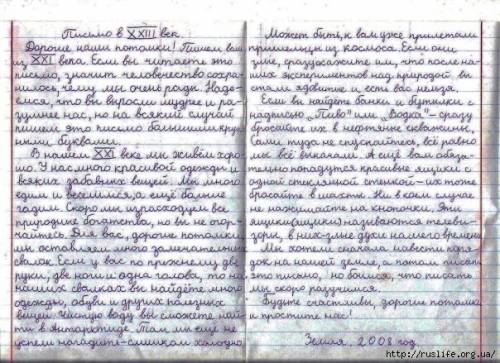 Письмо в XXIII век.
Дорогие наши потомки! Пишем вам
из XXI века. Если вы читаете это
письмо, значит человечество сохра-
нилось, чему мы очень рады. Наде-
емся, что вы выросли мудрее и ра-
зумнее нас, но на всякий случай
пишем это письмо большими круп-
ными буквами.
В нашем XXI веке мы живём хоро-
шо. У нас много красивой одежды и
всяких забавных вещей. Мы много
едим и веселимся, а ещё больше
гадим. Скоро мы израсходуем все
природные богатства, но вы не огор-
чайтесь. Для вас, дорогие потомки,
мы оставляем много замечательных
свалок. Если у вас по прежнему две
руки, две ноги и одна голова, то на
наших свалках вы найдёте много
одежды, обуви и других полезных
вещей. Чистую воду вы сможете най-
ти в Антарктиде. Там мы ещё не
успели нагадить-слишком холодно.
Может быть, к вам уже прилетали
пришельцы из космоса. Если они
злые, сразу скажите им, что после на-
ших экспериментов над природой вы
стали ядовитые и есть вас нельзя.
Если вы найдёте банки и бутылки с
надписью „Пиво" или „Водка" - сразу
бросайте их в нефтяные скважины.
Сами туда не спускайтесь, всё равно
мы всё выкачали. А ещё вам обяза-
тельно попадутся красивые ящики с
одной стеклянной стенкой - их тоже
бросайте в шахты. Ни в коем случае
не нажимайте на кнопочки. Эти
ящики(ящики) называются телеви-
зоры, в них-злые духи нашего времени.
Мы хотели сначала навести поря-
док на нашей земле, а потом писать
это письмо, но боимся, что писать
мы скоро разучимся.
Будьте счастливы, дорогие потомки
и простите нас!
Земля, 2008 год.
http://ruslife.org.ua/